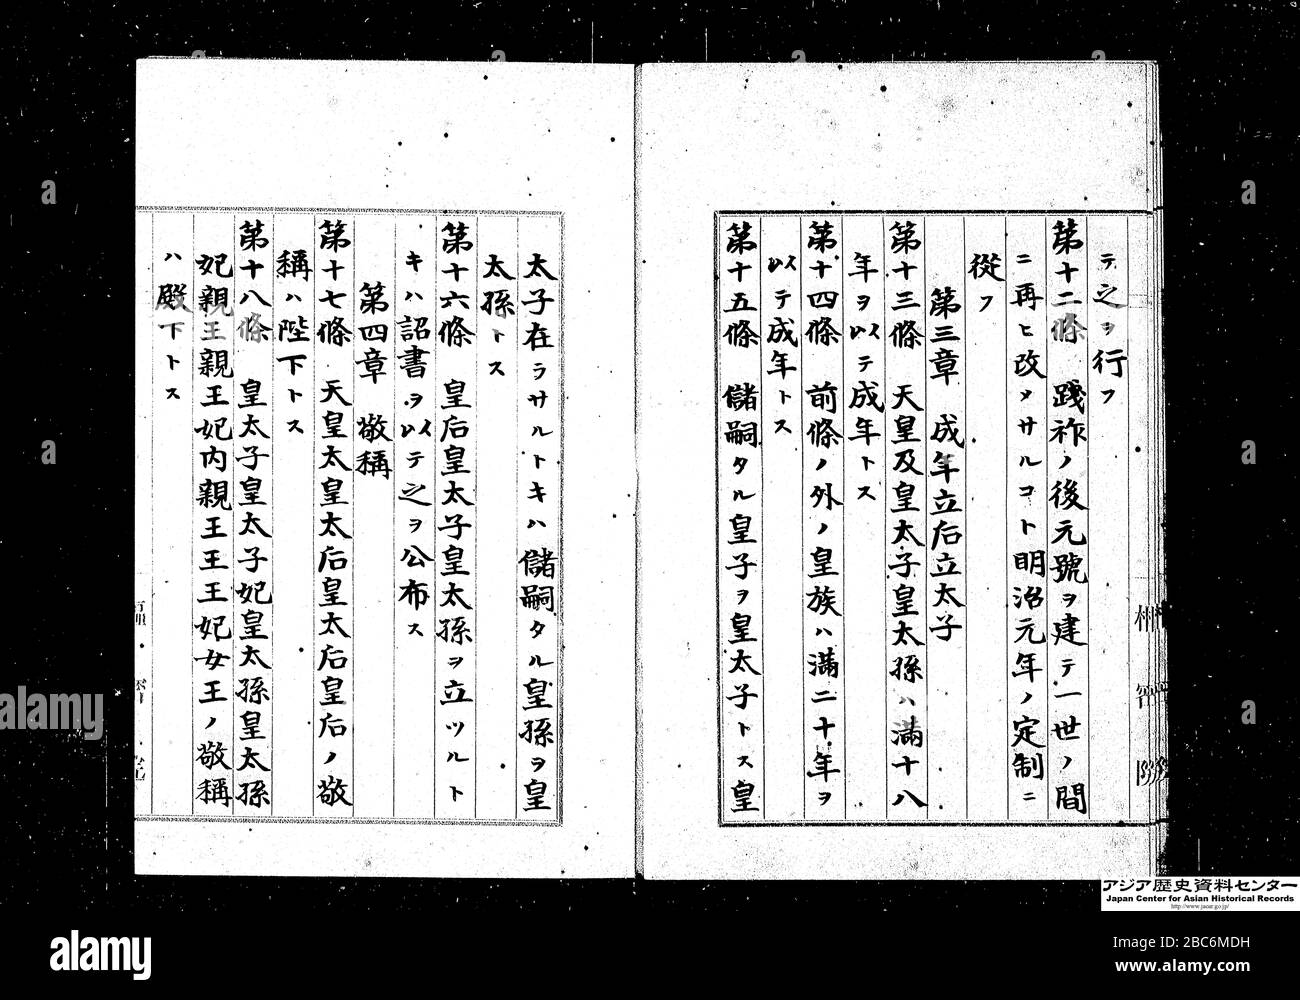 テ之ヲ行フ
第十二條　踐祚ノ後元號ヲ建テ一世ノ間
ニ再ヒ改メサルコト明治元年ノ定制ニ
從フ
第三章　成年立后立太子
第十三條　天皇及皇太子皇太孫ハ滿十八
年ヲ以テ成年トス
第十四條　前條ノ外ノ皇族ハ滿二十年ヲ
以テ成年トス
第十五條　儲嗣タル皇子ヲ皇太子トス皇
太子在ラサルトキハ儲嗣タル皇孫ヲ皇
太孫トス
第十六條　皇后皇太子皇太孫ヲ立ツルト
キハ詔書ヲ以テ之ヲ公布ス
第四章　敬稱
第十七條　天皇太皇太后皇太后皇后ノ敬
稱ハ陛下トス
第十八條　皇太子皇太子妃皇太孫皇太孫
妃親王親王妃内親王王王妃女王ノ敬稱
ハ殿下トス
アジア歴史資料センター
Japan Center for Asian Historical Records
http://www.jacar.go.jp/
alamy
Image ID: 2BC6MDH
www.alamy.com